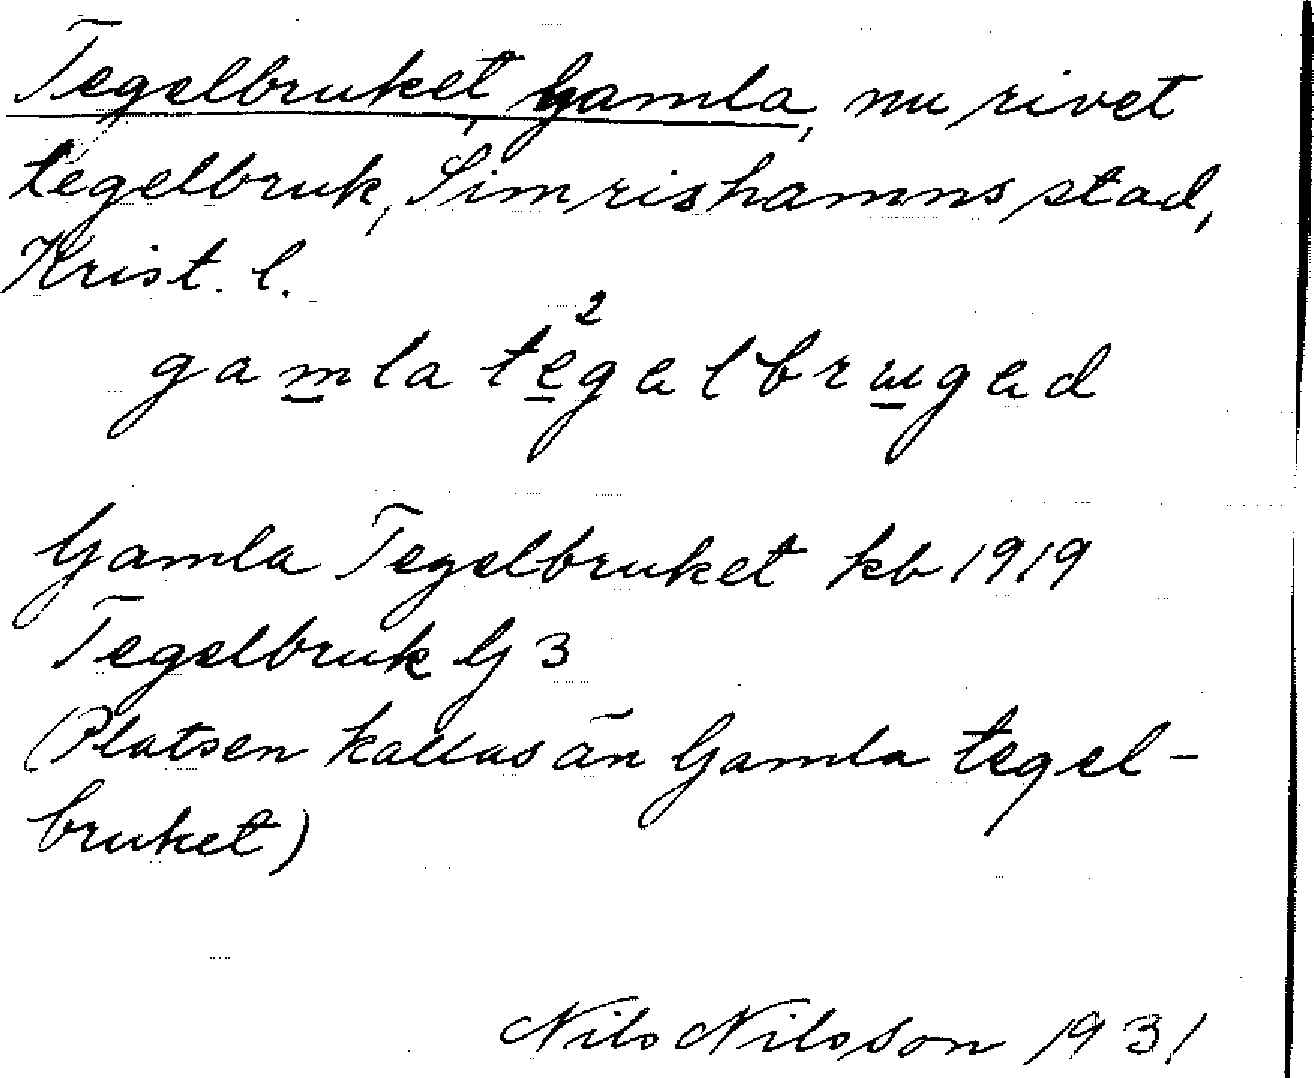 Tegelbruket, Gamla, nu rivet
tegelbruk, Simrishamns stad,
Krist. l.
gamla te²gelbrɯgəd
Gamla Tegelbruket kb 1919
Tegelbruk G 3
(Platsen kallas än Gamla tegel-
bruket)
Nils Nilsson 1931